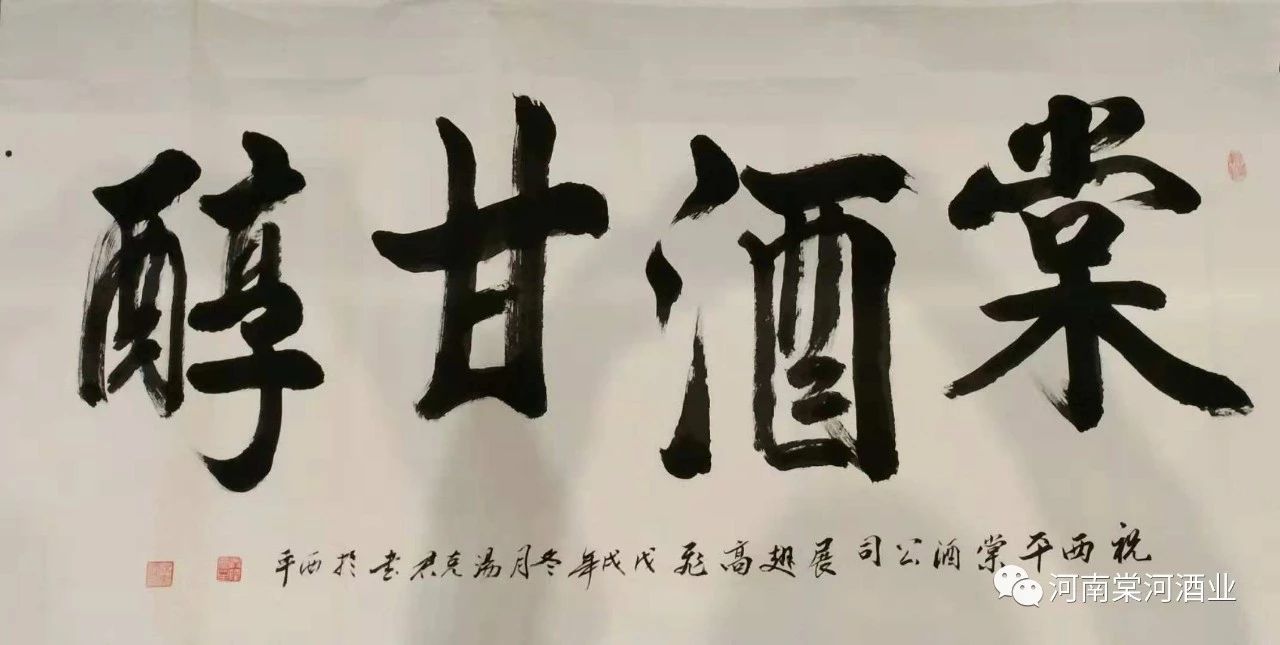 棠酒甘醇
祝西平棠酒公司展翅高飞戊戌年冬月汤克君书于西平
河南棠河酒业